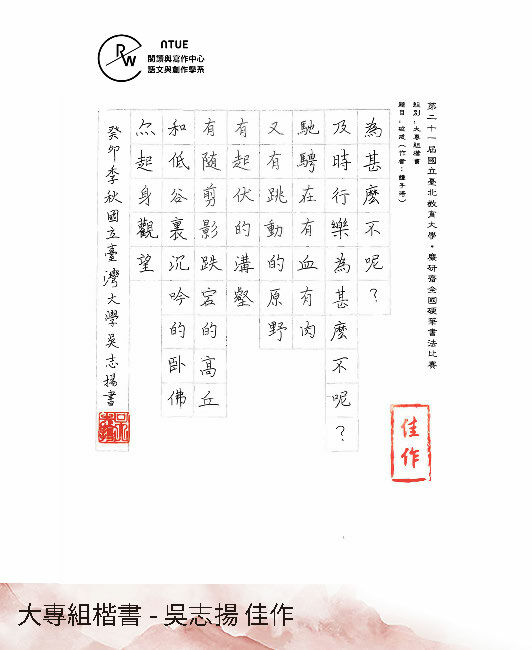 RW
NTUE
閱讀與寫作中心
語文與創作學系
第二十一屆國立臺北教育大學・麋研齋全國硬筆書法比賽
組別：大專組楷書
為甚麼不呢？
及時行樂為甚麼不呢？
馳騁在有血有肉
又有跳動的原野
有起伏的溝壑
有隨剪影跌宕的高丘
和低谷裏沉吟的卧佛
尒起身觀望
癸卯季秋國立臺灣大學吳志揚書
佳作
大專組楷書 - 吳志揚 佳作